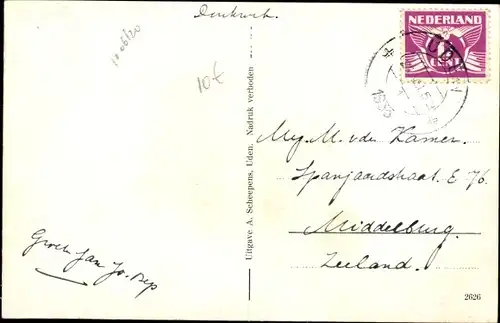 Drukwerk.
10€
NEDERLAND
UDEN
1935
Mej. M. v. der Kamer.
Spanjaardstraat. E 76.
Middelburg.
Zeeland.
Groeten Jan Jo. Bep
Uitgave A. Scheepens, Uden. Nadruk verboden
2626